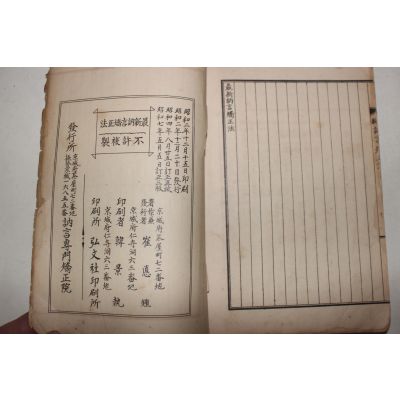 最新訥言矯正法
昭和二年十二月十五日印刷
昭和二年十二月二十日發行
昭和四年八月廿五日訂正再版
昭和七年五月五日訂正三版
最新訥言矯正法
不許複製
京城府茶屋町七二番地
著作兼
發行者 崔
京城府仁寺洞六三番地
印刷者 韓景
京城府仁寺洞六二番地
印刷所 弘文社印刷所
發行所
京城府茶屋町七二番地
振替京城一六八五五番
訥言專門矯正院